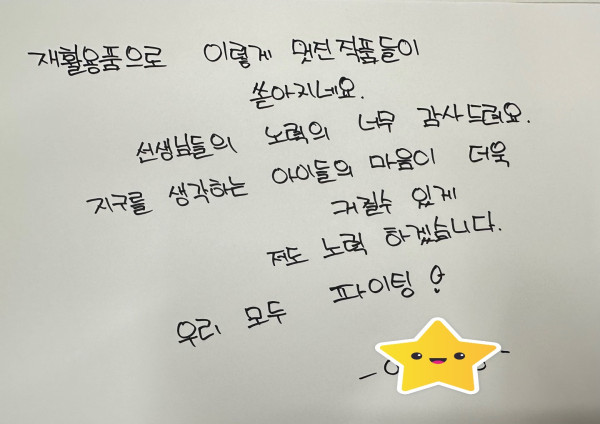 재활용품으로 이렇게 멋진 작품들이
쏟아지네요.
선생님들의 노력의 너무 감사드려요.
지구를 생각하는 아이들의 마음이 더욱
커질수 있게
저도 노력 하겠습니다.
우리 모두 파이팅!